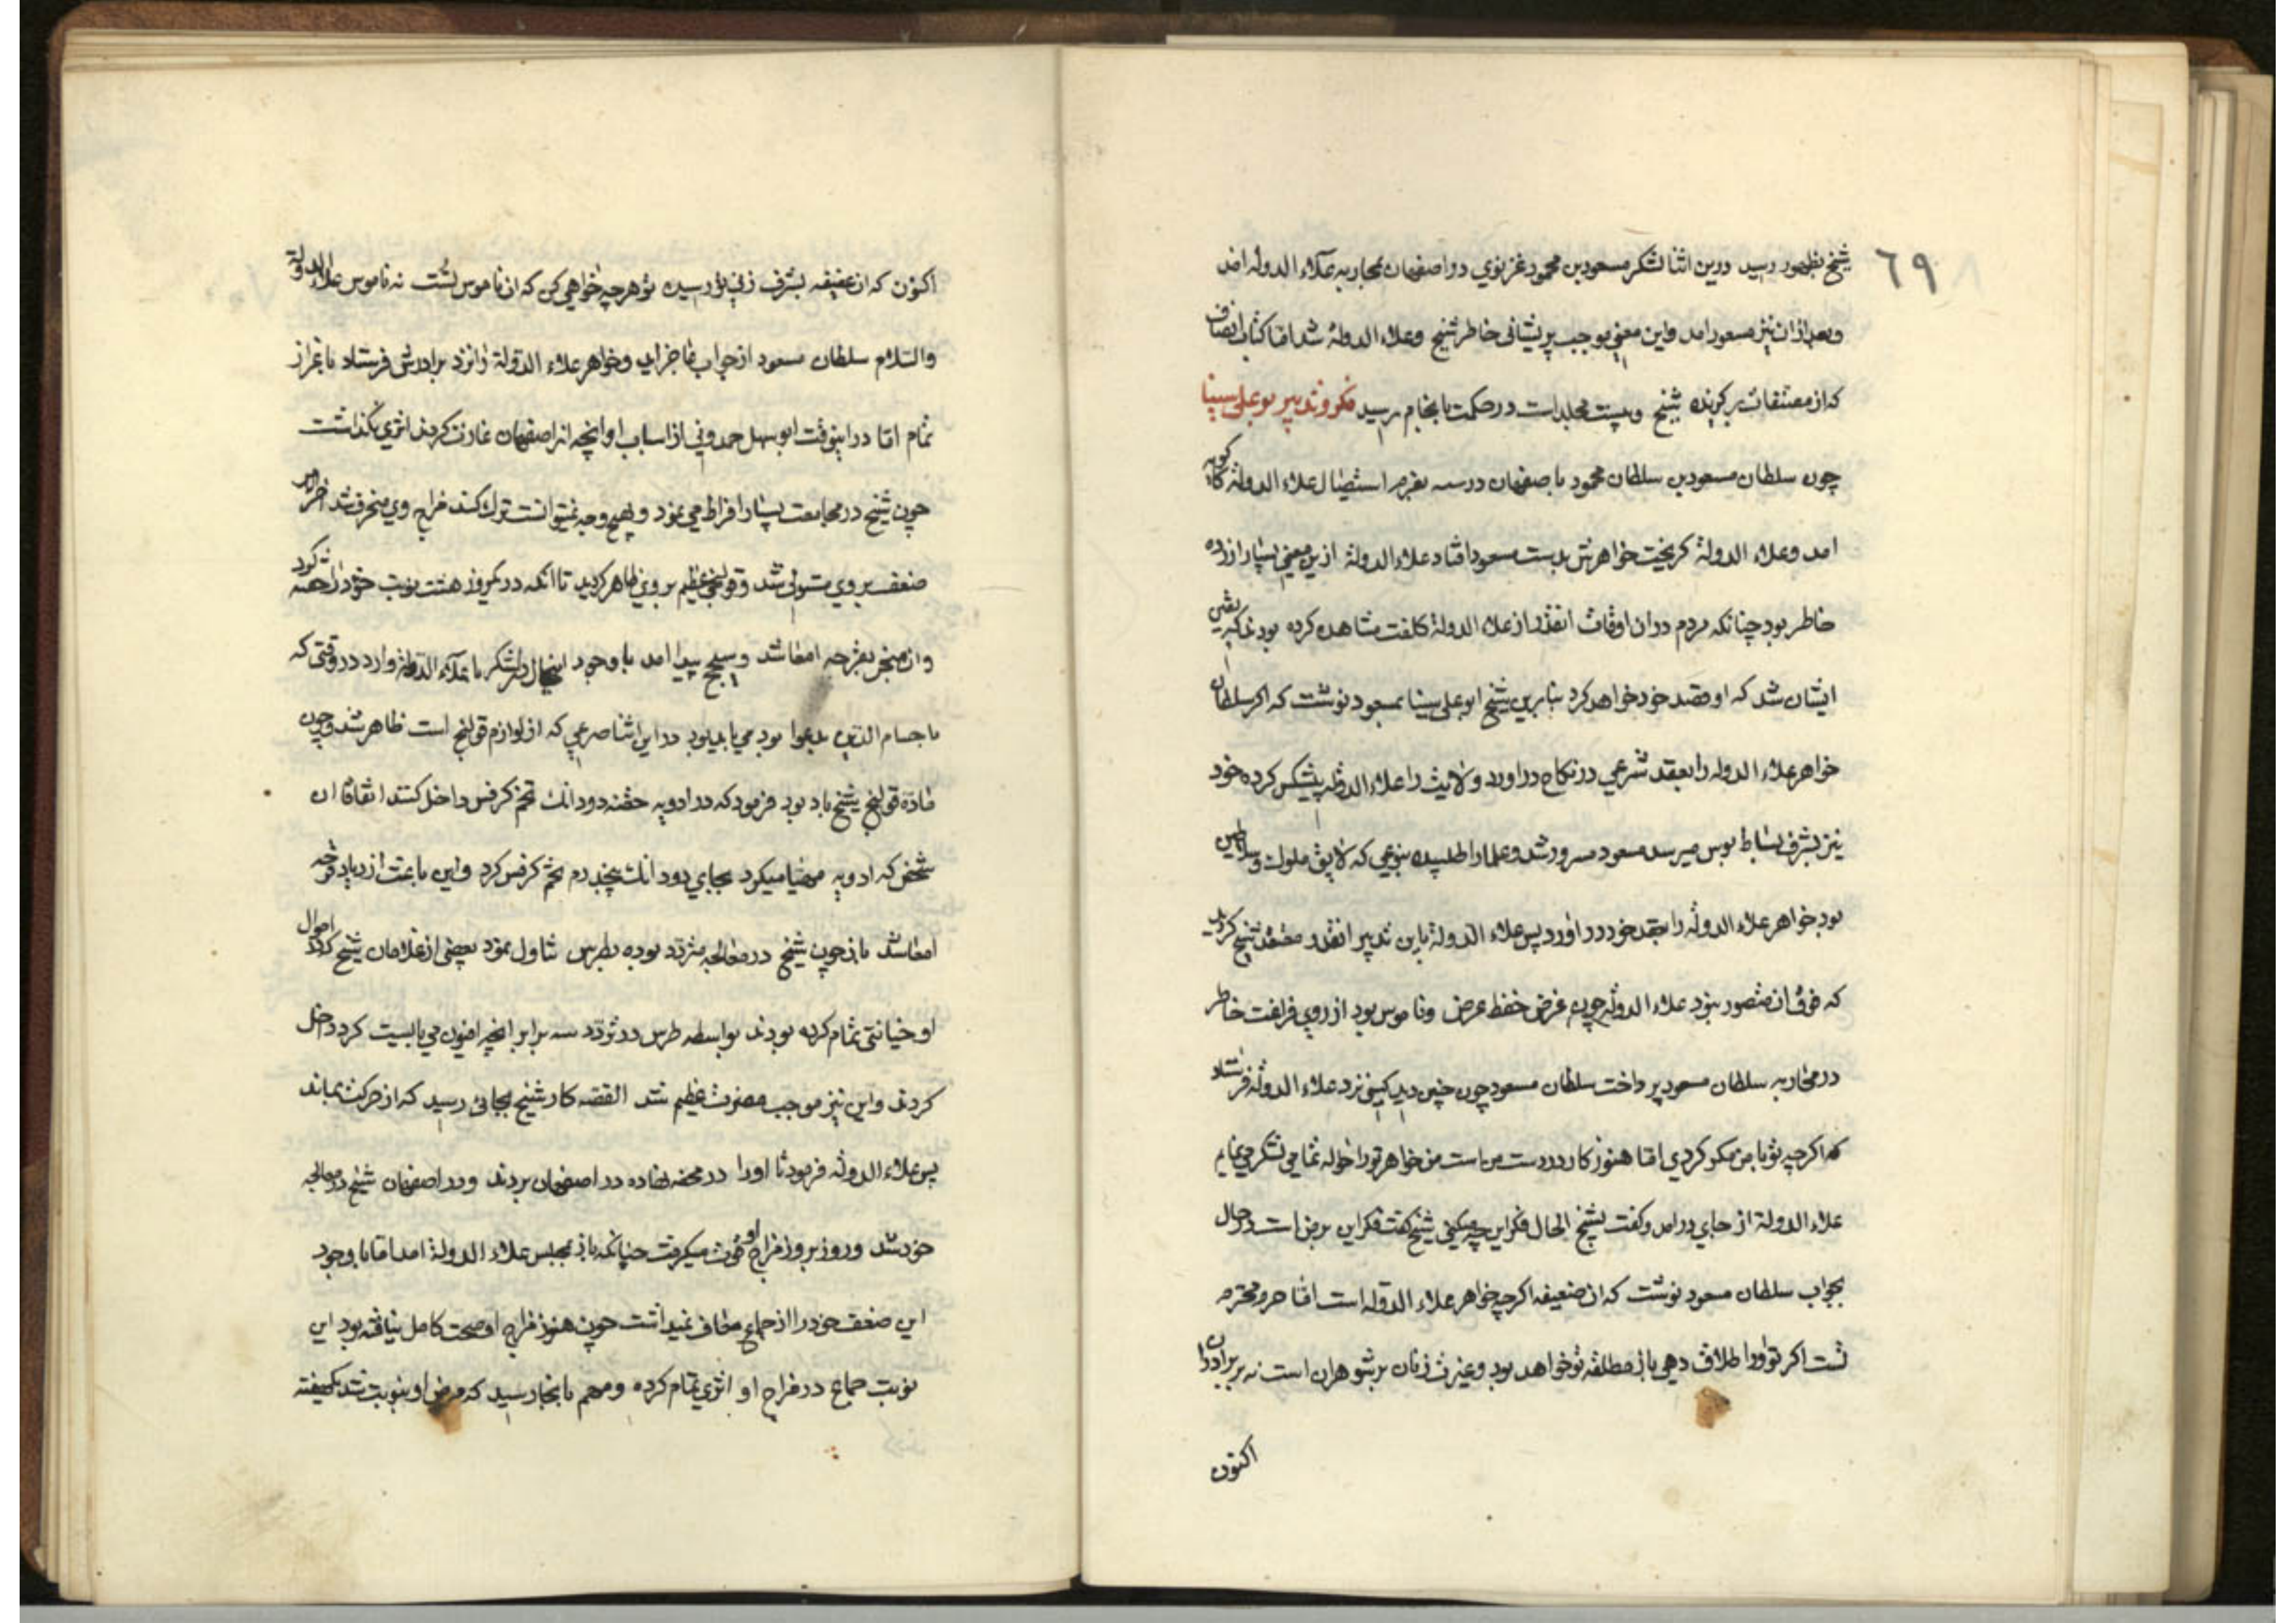 ٦٩
شیخ بظهور رسید درین اثنا لشکر مسعود بن محمود غزنوي در اصفهان بمحاربه علاء الدوله امد
وبعد ازان نیز مسعود امد واین معنی موجب پریشانی خاطر شیخ وعلاء الدولة شد اما کتاب انصاف
که از مصنفات برکزیده شیخ و بیست مجلد است در حکمت بانجام رسید فکر و تدبیر بوعلی سینا
چون سلطان مسعود بن سلطان محمود باصفهان درسه بعزم استیصال علاء الدولة کاکویه
امد وعلاء الدولة کریخت خواهرش بدست مسعود افتاد علاء الدولة ازین معنی بسیار ازرده
خاطر بود چنانکه مردم دران اوقات انقدر از علاء الدولة کلفت مشاهده کرده بودند که یقین
ایشان شد که او قصد خود خواهد کرد بنابرین شیخ ابو علی سینا بمسعود نوشت که اکر سلطان
خواهر علاء الدوله را بعقد شرعی در نکاح در اورد ولایت را علاء الدوله پیشکش کرده خود
نیز بشرف بساط بوس میرسد مسعود مسرور شد وعلما را طلبیده بنوعی که لایق ملوک وسلاطین
بود خواهر علاء الدوله را بعقد خود در اورد پس علاء الدولة باین تدبیر انقدر معتقد شیخ کردید
که فوق ان متصور نبود علاء الدوله چون غرض حفظ عرض وناموس بود از روی فراغت خاطر
در محاربه سلطان مسعود پرداخت سلطان مسعود چون چنین دید کسی نزد علاء الدوله فرستاد
که اکرچه تو با من مکر کردي اما هنوز کار در دست من است من خواهر تو را حواله تمامی لشکر می نمایم
علاء الدولة از جای در امد وکفت بشیخ الحال فکر این چه میکنی شیخ کفت فکر این بر من است در حال
بجواب سلطان مسعود نوشت که ان ضعیفه اکرچه خواهر علاء الدوله است اما حرم محترم
تست اکر تو اورا طلاق دهی باز مطلقه تو خواهد بود وغیرت زنان بر شوهران است نه بر برادران
اکنون
اکنون که ان عفیفه بشرف زنی تو رسیده تو هر چه خواهی کن که ان ناموس تست نه ناموس علاء الدولة
والسلام سلطان مسعود از جواب عاجز امد وخواهر علاء الدولة را نزد برادرش فرستاد باعزاز
تمام اما در اینوقت ابو سهل حمدونی از اسباب او انچه از اصفهان غارت کردند اثری نکذاشت
چون شیخ در مجامعت بسیار افراط می نمود و بهیچ وجه نمیتوانست ترک کند مزاج وی منحرف شد اخر الامر
ضعف بر وی مستولی شد وقولنجی عظیم بر وی ظاهر کردید تا انکه در یکروز هشت نوبت خود را حقنه کرد
وان منجر بقرحه امعا شد وسحج پیدا امد با وجود اینحال در لشکر با علاء الدوله وارد در وقتی که
با حسام الدین بدعوا بود می بایدبود در این اثنا صرعی که از لوازم قولنج است ظاهر شد وچون
ماده قولنج شیخ باد بود فرمود که در ادویه حقنه دو دانک تخم کرفس داخل کنند اتفاقا ان
شخص که ادویه مهیا میکرد بجای دو دانک پنجدرم تخم کرفس کرد واین باعث ازدیاد قرحه
امعا شد باز چون شیخ در معالجه متردد بوده بطرس تناول نمود بعضی از غلامان شیخ که در اموال
او خیانتی تمام کرده بودند بواسطه طرس در تردد سه برابر انچه افیون می بایست کرد داخل
کردند واین نیز موجب مضرت عظیم شد القصه کار شیخ بجائی رسید که از حرکت بماند
پس علاء الدوله فرمود تا اورا در محفه نهاده در اصفهان بردند ودر اصفهان شیخ در معالجه
خود شد وروز بروز مزاج او قوت میکرفت چنانکه باز بمجلس علاء الدولة امد اما با وجود
این ضعف خود را از جماع معاف نمیداشت چون هنوز مزاج او صحت کامل نیافته بود این
نوبت جماع در مزاج او اثری تمام کرده ومهم بانجا رسید که مرض او بنوبت شد یکهفته